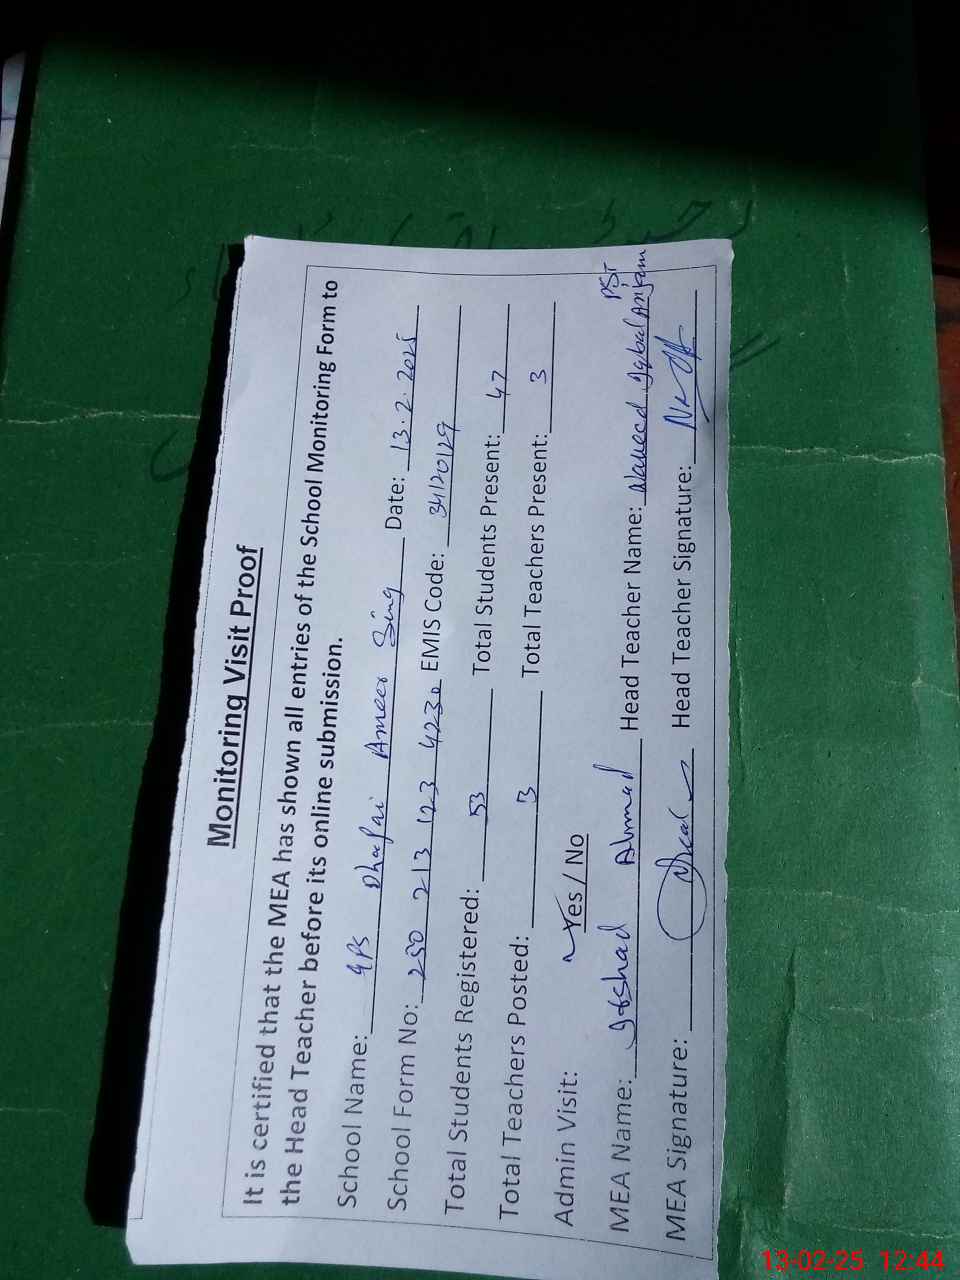 Monitoring Visit Proof
It is certified that the MEA has shown all entries of the School Monitoring Form to
the Head Teacher before its online submission.
School Name: GPS Dhapai Ameer Sing Date: 13.2.2025
School Form No: 250 213 123 4230 EMIS Code: 34120129
Total Students Registered: 53 Total Students Present: 47
Total Teachers Posted: 3 Total Teachers Present: 3
Admin Visit: Yes / No
PST
MEA Name: Irshad Ahmad Head Teacher Name: Naveed Iqbal Anjam
MEA Signature: Head Teacher Signature:
13-02-25 12:44